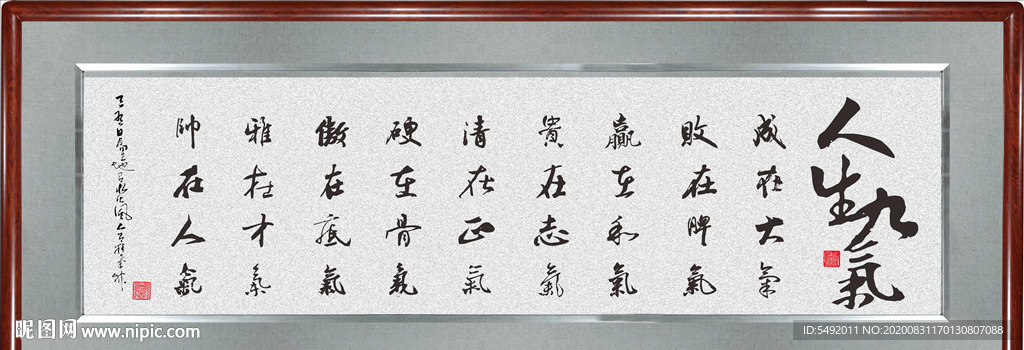 人生九氣
成在大氣
敗在脾氣
贏在和氣
貴在志氣
清在正氣
硬在骨氣
傲在底氣
雅在才氣
帥在人氣
昵图网 www.nipic.com
ID:5492011 NO:20200831170130807088